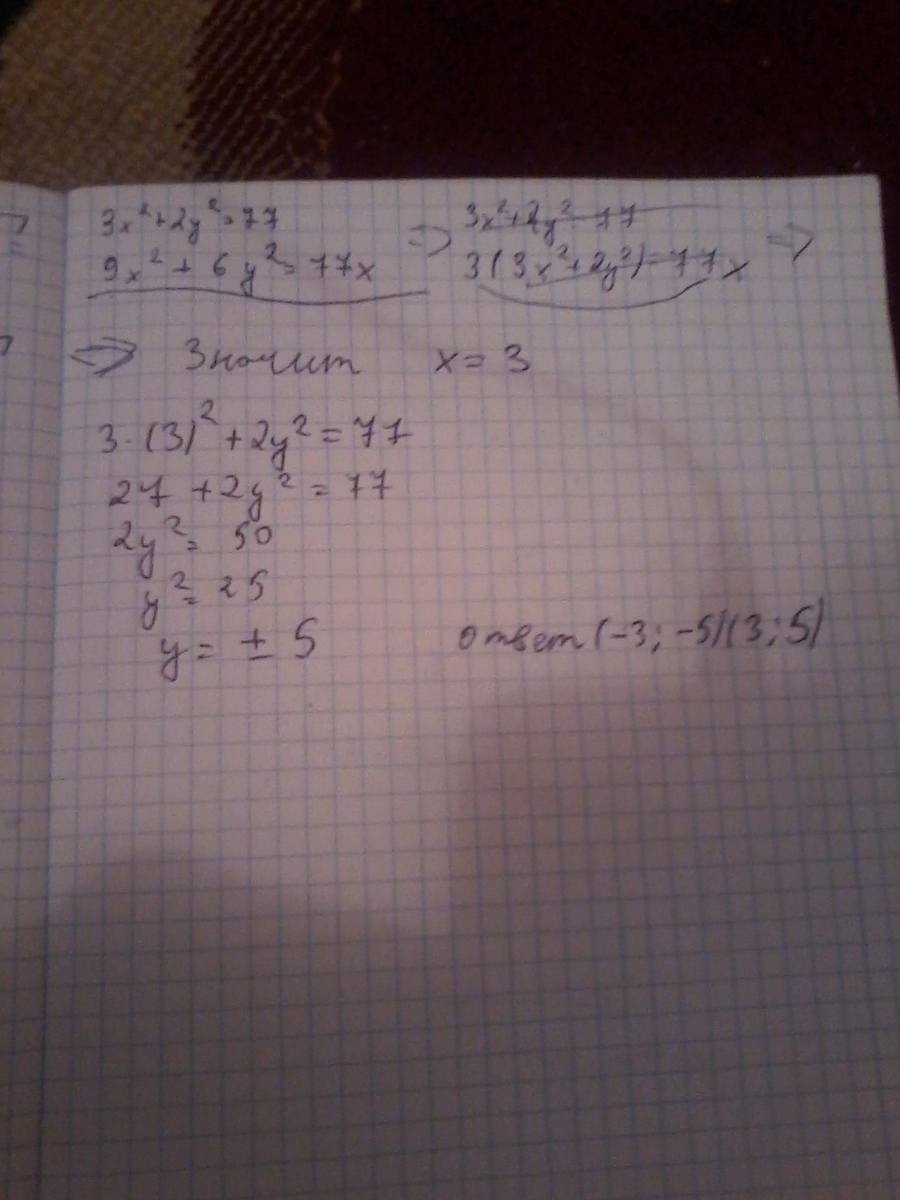 3x²+2y²=77
9x² + 6y²=77x
=> 3x²+2y²=77
3(3x²+2y²)=77x =>
=> Значит x=3
3·(3)²+2y²=77
27+2y²=77
2y²=50
y²=25
y=±5
ответ (-3; -5)(3; 5)